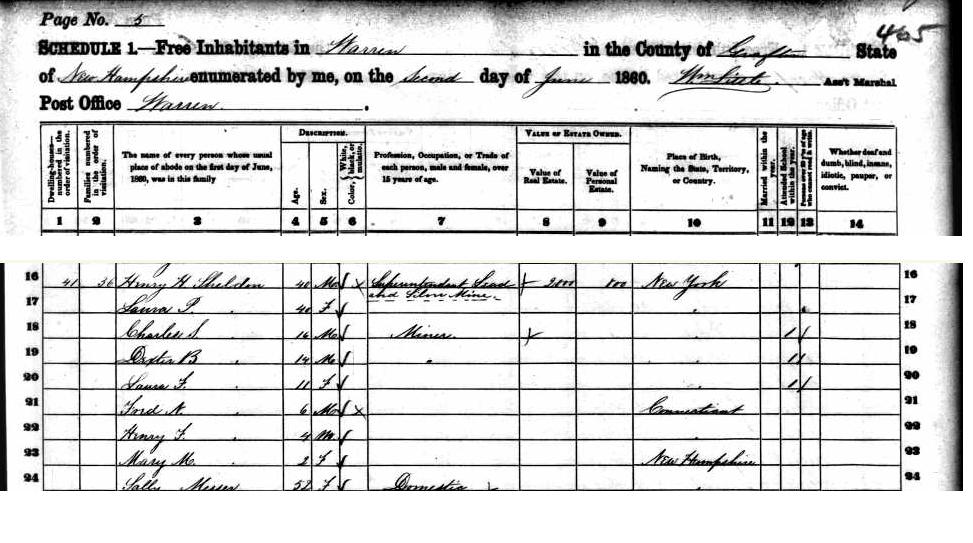 Page No. 5
465
SCHEDULE 1.—Free Inhabitants in Warren in the County of Grafton State
of New Hampshire enumerated by me, on the second day of June 1860. Wm Little Ass't Marshal
Post Office Warren.
Dwelling-houses—numbered in the order of visitation.
Families numbered in the order of visitation.
The name of every person whose usual place of abode on the first day of June, 1860, was in this family
DESCRIPTION.
Age.
Sex.
Color, White, black, or mulatto.
Profession, Occupation, or Trade of each person, male and female, over 15 years of age.
VALUE OF ESTATE OWNED.
Value of Real Estate.
Value of Personal Estate.
Place of Birth, Naming the State, Territory, or Country.
Married within the year.
Attended School within the year.
Persons over 20 y'rs of age who cannot read & write.
Whether deaf and dumb, blind, insane, idiotic, pauper, or convict.
1 2 3 4 5 6 7 8 9 10 11 12 13 14
16 41 36 Henry H Sheldon 40 M Superintendent Lead and Silver Mine. 2000 800 New York 16
17 Laura P. 40 F " 17
18 Charles S. 16 M Miner. " 1 18
19 Dexter B 14 M " " 1 19
20 Laura F. 11 F " 1 20
21 Ford N. 6 M Connecticut 21
22 Henry F. 4 M " 22
23 Mary M. 2 F New Hampshire 23
24 Sally Messer 52 F Domestic " 24